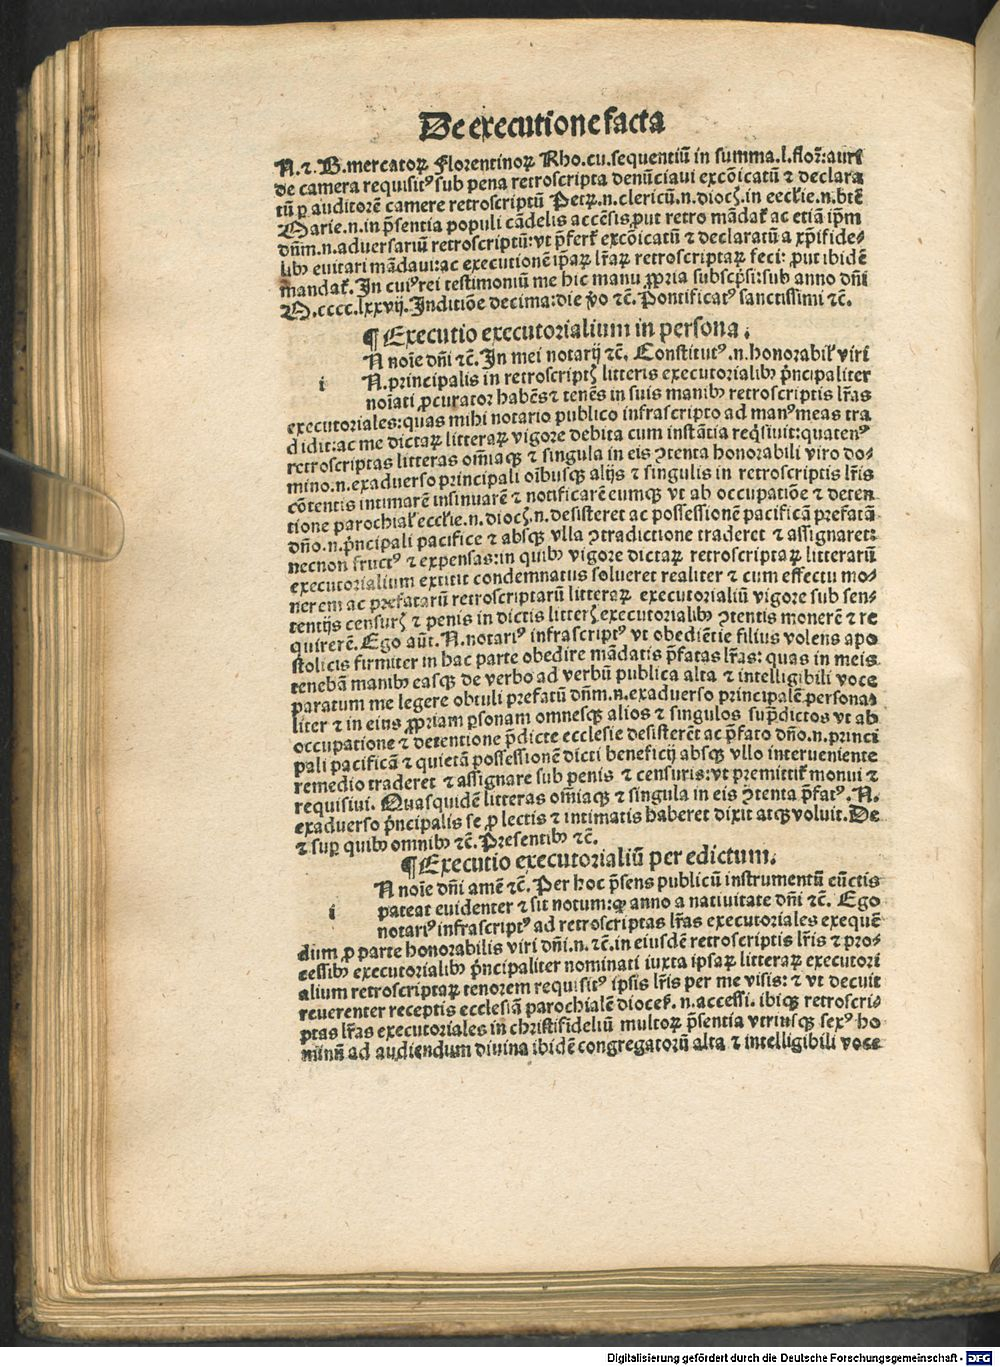 De executione facta
N.⁊.B.mercatoꝝ Florentinoꝝ Rho.cu.sequentiū in summa.l.floꝛ:auri
de camera requisitꝰ sub pena retroscripta denūciaui excōicatū ⁊ declara
tū ꝑ auditorē camere retroscriptū Petꝝ.n.clericū.n.dioc̄.in ecclīe.n.btē
Marie.n.in p̄sentia populi cādelis accēsis ꝓut retro mādat̄ ac etiā ip̄m
dn̄m.n.aduersariū retroscriptū:vt p̄fert̄ excōicatū ⁊ declaratū a xp̄ifide-
libꝫ euitari mādaui:ac executionē ip̄aꝝ lr̄aꝝ retroscriptaꝝ feci: ꝓut ibidē
mandat̄. In cuiꝰ rei testimoniū me hic manu ꝓpria subscrip̄si:sub anno dn̄i
M.cccc.lxxvij.Inditiōe decima:die v̄o ⁊c̄.Pontificatꝰ sanctissimi ⁊c̄.
¶ Executio executorialium in persona.
N noīe dn̄i ⁊c̄. In mei notarij ⁊c̄. Constitutꝰ.n.honorabil̄ viri
i N.principalis in retroscriptꝭ litteris executorialibꝫ p̄ncipaliter
noīati ꝓcurator habēs⁊ tenēs in suis manibꝫ retroscriptis lr̄as
executoriales:quas mihi notario publico infrascripto ad manꝰ meas tra
didit:ac me dictaꝝ litteraꝝ vigore debita cum instātia reqsiuit:quatenꝰ
retroscriptas litteras om̄iaqꝫ ⁊ singula in eis ꝯtenta honorabili viro do-
mino.n.exaduerso principali oībusqꝫ alijs ⁊ singulis in retroscriptis lr̄is
cōtentis intimarē insinuarē ⁊ notificarē eumqꝫ vt ab occupatiōe ⁊ deten
tione parochial̄ ecclīe.n.dioc̄.n.desisteret ac possessionē pacificā prefatā
dn̄o.n.p̄ncipali pacifice ⁊ absqꝫ vlla ꝯtradictione traderet ⁊ assignaret:
necnon fructꝰ ⁊ expensas:in quibꝫ vigore dictaꝝ retroscriptaꝝ litterarū
executorialium extitit condemnatus solueret realiter ⁊ cum effectu mo-
nerem ac prefatarū retroscriptarū litteraꝝ executorialiū vigore sub sen-
tentijs censurꝭ ⁊ penis in dictis litterꝭ executorialibꝫ ꝯtentis monerē ⁊ re
quirerē. Ego aūt.N.notariꝰ infrascriptꝰ vt obediētie filius volens apo
stolicis firmiter in hac parte obedire mādatis p̄fatas lr̄as: quas in meis
tenebā manibꝫ easqꝫ de verbo ad verbū publica alta ⁊ intelligibili voce
paratum me legere obtuli prefatū dn̄m.n.exaduerso principalē.persona-
liter ⁊ in eius ꝓpriam ꝑsonam omnesqꝫ alios ⁊ singulos sup̄dictos vt ab
occupatione ⁊ detentione p̄dicte ecclesie desisterēt ac p̄fato dn̄o.n.princi
pali pacificā ⁊ quietā possessionē dicti beneficij absqꝫ vllo interueniente
remedio traderet ⁊ assignare sub penis ⁊ censuris:vt premittit̄ monui ⁊
requisiui. Quasquidē litteras om̄iaqꝫ ⁊ singula in eis ꝯtenta p̄fatꝰ.N.
exaduerso p̄ncipalis se ꝓ lectis ⁊ intimatis haberet dixit atqꝫ voluit.De
⁊ suꝑ quibꝫ omnibꝫ ⁊c̄.Presentibꝫ ⁊c̄.
¶ Executio executorialiū per edictum.
N noīe dn̄i amē ⁊c̄. Per hoc p̄sens publicū instrumentū cūctis
i pateat euidenter ⁊ sit notum:ꝙ anno a natiuitate dn̄i ⁊c̄. Ego
notariꝰ infrascriptꝰ ad retroscriptas lr̄as executoriales exequē
dium ꝓ parte honorabilis viri dn̄i.n.⁊c̄.in eiusdē retroscriptis lr̄is ⁊ pro-
cessibꝫ executorialibꝫ p̄ncipaliter nominati iuxta ipsaꝝ litteraꝝ executori
alium retroscriptaꝝ tenorem requisitꝰ ipsis lr̄is per me visis: ⁊ vt decuit
reuerenter receptis ecclesiā parochialē dioces̄. n.accessi. ibiqꝫ retroscri-
ptas lr̄as executoriales in christifideliū multoꝝ p̄sentia vtriusqꝫ sexꝰ ho
minū ad audiendum diuina ibidē congregatorū alta ⁊ intelligibili voce
Digitalisierung gefördert durch die Deutsche Forschungsgemeinschaft - DFG